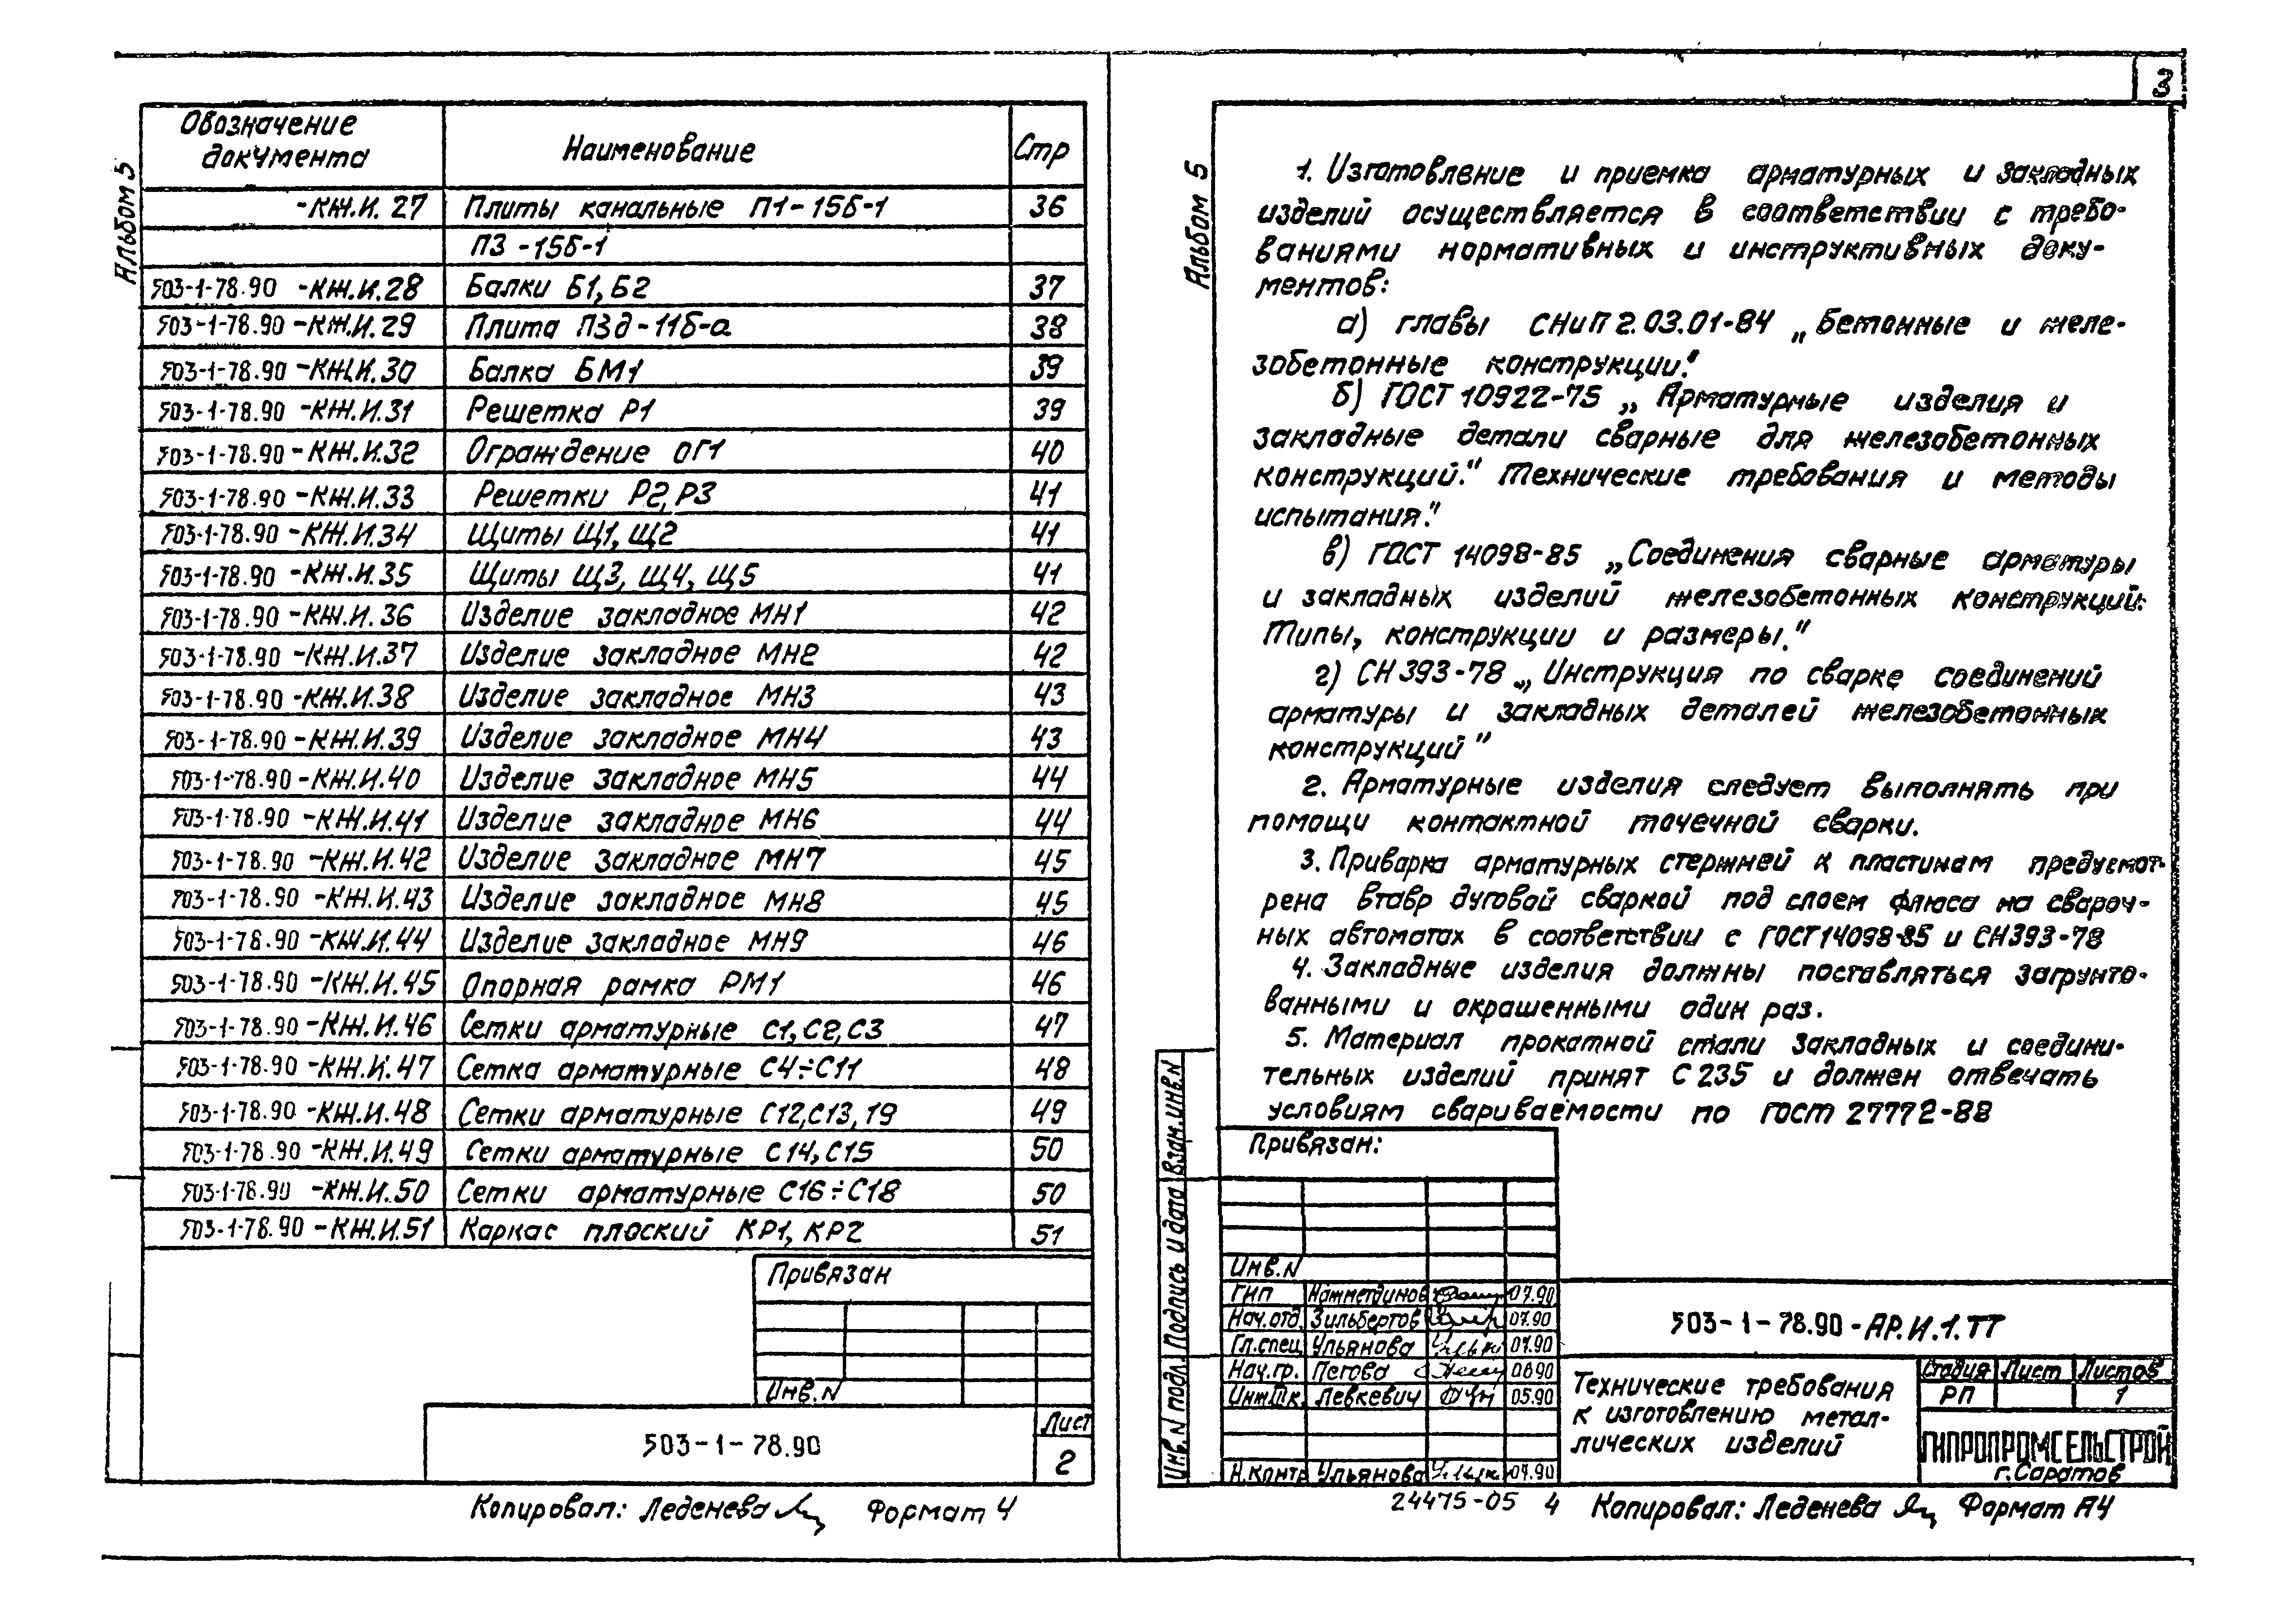 Альбом 5
Обозначение документа Наименование Стр
-КЖ.И. 27 Плиты канальные П1-15Б-1 36
П3-15Б-1
503-1-78.90 -КЖ.И.28 Балки Б1, Б2 37
503-1-78.90 -КЖ.И.29 Плита П3д-11Б-а 38
503-1-78.90 -КЖ.И.30 Балка БМ1 39
503-1-78.90 -КЖ.И.31 Решетка Р1 39
503-1-78.90 -КЖ.И.32 Ограждение ОГ1 40
503-1-78.90 -КЖ.И.33 Решетки Р2, Р3 41
503-1-78.90 -КЖ.И.34 Щиты Щ1, Щ2 41
503-1-78.90 -КЖ.И.35 Щиты Щ3, Щ4, Щ5 41
503-1-78.90 -КЖ.И.36 Изделие закладное МН1 42
503-1-78.90 -КЖ.И.37 Изделие закладное МН2 42
503-1-78.90 -КЖ.И.38 Изделие закладное МН3 43
503-1-78.90 -КЖ.И.39 Изделие закладное МН4 43
503-1-78.90 -КЖ.И.40 Изделие закладное МН5 44
503-1-78.90 -КЖ.И.41 Изделие закладное МН6 44
503-1-78.90 -КЖ.И.42 Изделие закладное МН7 45
503-1-78.90 -КЖ.И.43 Изделие закладное МН8 45
503-1-78.90 -КЖ.И.44 Изделие закладное МН9 46
503-1-78.90 -КЖ.И.45 Опорная рамка РМ1 46
503-1-78.90 -КЖ.И.46 Сетки арматурные С1, С2, С3 47
503-1-78.90 -КЖ.И.47 Сетка арматурные С4÷С11 48
503-1-78.90 -КЖ.И.48 Сетки арматурные С12, С13, 19 49
503-1-78.90 -КЖ.И.49 Сетки арматурные С14, С15 50
503-1-78.90 -КЖ.И.50 Сетки арматурные С16÷С18 50
503-1-78.90 -КЖ.И.51 Каркас плоский КР1, КР2 51
Привязан
Инв.N
503-1-78.90
Лист
2
Копировал: Леденева Формат 4
3
Альбом 5
1. Изготовление и приемка арматурных и закладных
изделий осуществляется в соответствии с требо-
ваниями нормативных и инструктивных доку-
ментов:
а) главы СНиП 2.03.01-84 „Бетонные и желе-
зобетонные конструкции."
б) ГОСТ 10922-75 „Арматурные изделия и
закладные детали сварные для железобетонных
конструкций." Технические требования и методы
испытания."
в) ГОСТ 14098-85 „Соединения сварные арматуры
и закладных изделий железобетонных конструкций.
Типы, конструкции и размеры."
г) СН 393-78 „Инструкция по сварке соединений
арматуры и закладных деталей железобетонных
конструкций"
2. Арматурные изделия следует выполнять при
помощи контактной точечной сварки.
3. Приварка арматурных стержней к пластинам предусмот-
рена втавр дуговой сваркой под слоем флюса на свароч-
ных автоматах в соответствии с ГОСТ 14098-85 и СН393-78
4. Закладные изделия должны поставляться загрунто-
ванными и окрашенными один раз.
5. Материал прокатной стали закладных и соедини-
тельных изделий принят С 235 и должен отвечать
условиям свариваемости по ГОСТ 27772-88
Привязан:
Инв.N
ГИП 07.90
Нач.отд. Зильбертов 07.90
Гл.спец Ульянова 07.90
Нач.гр. Пегова 06.90
Инж.IIк. Левкевич 05.90
Н.контр Ульянова 07.90
503-1-78.90-АР.И.1.ТТ
Технические требования
к изготовлению метал-
лических изделий
Стадия Лист Листов
РП 1
ГИПРОПРОМСЕЛЬСТРОЙ
г.Саратов
Инв.N подл. Подпись и дата Взам.инв.N
24475-05 4 Копировал: Леденева Формат А4